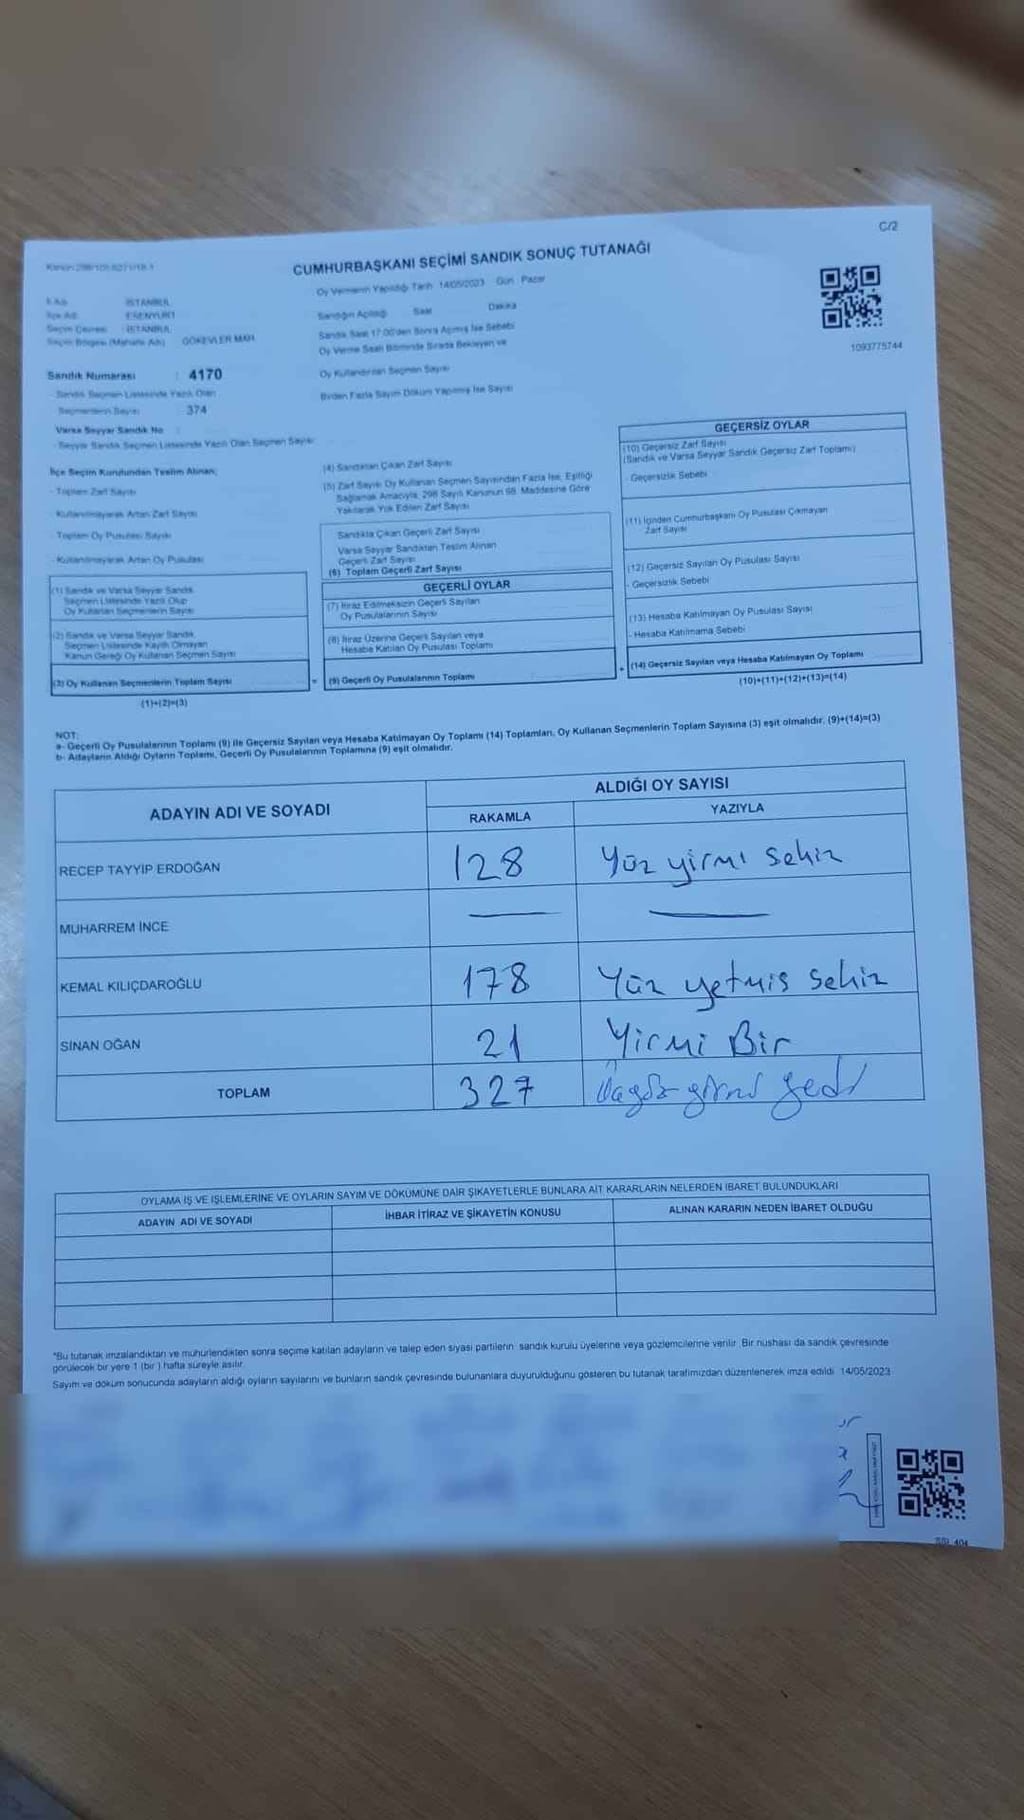 C/2
CUMHURBAŞKANI SEÇİMİ SANDIK SONUÇ TUTANAĞI
Oy Vermenin Yapıldığı Tarih 14/05/2023 Gün Pazar
İSTANBUL
ESENYURT
İSTANBUL
GÖKEVLER MAH
Sandığın Açıldığı Saat Dakika
Sandık Saat 17:00'den Sonra Açılmış İse Sebebi
Oy Verme Saati Bitiminde Sırada Bekleyen ve
Oy Kullandırılan Seçmen Sayısı
Birden Fazla Sayım Döküm Yapılmış İse Sayısı
1093775744
Sandık Numarası : 4170
Sandık Seçmen Listesinde Yazılı Olan
Seçmenlerin Sayısı 374
Varsa Seyyar Sandık No
- Seyyar Sandık Seçmen Listesinde Yazılı Olan Seçmen Sayısı
İlçe Seçim Kurulundan Teslim Alınan;
- Toplam Zarf Sayısı
- Kullanılmayarak Artan Zarf Sayısı
- Toplam Oy Pusulası Sayısı
- Kullanılmayarak Artan Oy Pusulası
(1) Sandık ve Varsa Seyyar Sandık
Seçmen Listesinde Yazılı Olup
Oy Kullanan Seçmenlerin Sayısı
(2) Sandık ve Varsa Seyyar Sandık
Seçmen Listesinde Kayıtlı Olmayan
Kanun Gereği Oy Kullanan Seçmen Sayısı
(3) Oy Kullanan Seçmenlerin Toplam Sayısı
(1)+(2)=(3)
(4) Sandıktan Çıkan Zarf Sayısı
(5) Zarf Sayısı Oy Kullanan Seçmen Sayısından Fazla İse, Eşitliği
Sağlamak Amacıyla, 298 Sayılı Kanunun 98. Maddesine Göre
Yakılarak Yok Edilen Zarf Sayısı
Sandıkta Çıkan Geçerli Zarf Sayısı
Varsa Seyyar Sandıktan Teslim Alınan
Geçerli Zarf Sayısı
(6) Toplam Geçerli Zarf Sayısı
GEÇERLİ OYLAR
(7) İtiraz Edilmeksizin Geçerli Sayılan
Oy Pusulalarının Sayısı
(8) İtiraz Üzerine Geçerli Sayılan veya
Hesaba Katılan Oy Pusulası Toplamı
= (9) Geçerli Oy Pusulalarının Toplamı
GEÇERSİZ OYLAR
(10) Geçersiz Zarf Sayısı
(Sandık ve Varsa Seyyar Sandık Geçersiz Zarf Toplamı)
- Geçersizlik Sebebi
(11) İçinden Cumhurbaşkanı Oy Pusulası Çıkmayan
Zarf Sayısı
(12) Geçersiz Sayılan Oy Pusulası Sayısı
- Geçersizlik Sebebi
(13) Hesaba Katılmayan Oy Pusulası Sayısı
- Hesaba Katılmama Sebebi
+ (14) Geçersiz Sayılan veya Hesaba Katılmayan Oy Toplamı
(10)+(11)+(12)+(13)=(14)
NOT:
a- Geçerli Oy Pusulalarının Toplamı (9) ile Geçersiz Sayılan veya Hesaba Katılmayan Oy Toplamı (14) Toplamları, Oy Kullanan Seçmenlerin Toplam Sayısına (3) eşit olmalıdır. (9)+(14)=(3)
b- Adayların Aldığı Oyların Toplamı, Geçerli Oy Pusulalarının Toplamına (9) eşit olmalıdır.
ADAYIN ADI VE SOYADI ALDIĞI OY SAYISI
RAKAMLA YAZIYLA
RECEP TAYYİP ERDOĞAN 128 Yüz yirmi sekiz
MUHARREM İNCE — —
KEMAL KILIÇDAROĞLU 178 Yüz yetmiş sekiz
SİNAN OĞAN 21 Yirmi Bir
TOPLAM 327 Üçyüz yirmi yedi
OYLAMA İŞ VE İŞLEMLERİNE VE OYLARIN SAYIM VE DÖKÜMÜNE DAİR ŞİKAYETLERLE BUNLARA AİT KARARLARIN NELERDEN İBARET BULUNDUKLARI
ADAYIN ADI VE SOYADI İHBAR İTİRAZ VE ŞİKAYETİN KONUSU ALINAN KARARIN NEDEN İBARET OLDUĞU
*Bu tutanak imzalandıktan ve mühürlendikten sonra seçime katılan adayların ve talep eden siyasi partilerin sandık kurulu üyelerine veya gözlemcilerine verilir. Bir nüshası da sandık çevresinde
görülecek bir yere 1 (bir) hafta süreyle asılır.
Sayım ve döküm sonucunda adayların aldığı oyların sayılarını ve bunların sandık çevresinde bulunanlara duyurulduğunu gösteren bu tutanak tarafımızdan düzenlenerek imza edildi. 14/05/2023